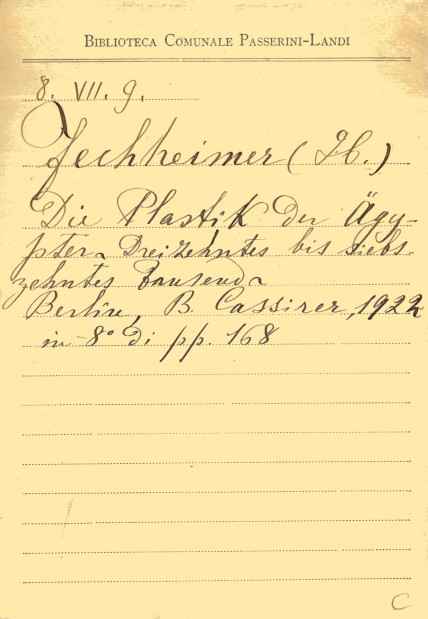 BIBLIOTECA COMUNALE PASSERINI-LANDI
8. VII. 9.
Fechheimer (H.)
Die Plastik der Ägy-
pter. Dreizehntes bis siebs-
zehntes Tausend.
Berlin, B. Cassirer, 1922
in-8° di pp. 168
C